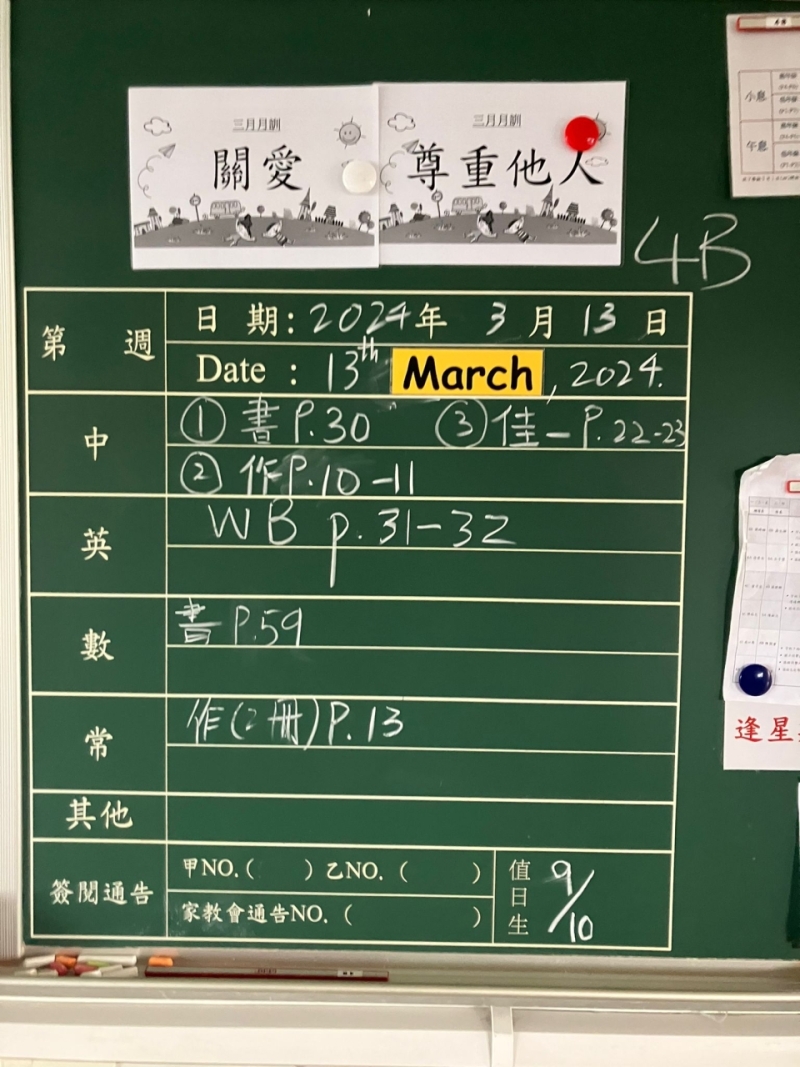 三月月訓
關愛
三月月訓
尊重他人
小息
午息
4B
第 週
日 期: 2024年 3 月 13 日
Date : 13th March, 2024.
中
① 書 P.30 ③ 佳一 P.22-23
② 作 P.10-11
英
WB p.31-32
數
書 P.59
常
作(2冊) P.13
其他
簽閱通告
甲NO.( ) 乙NO. ( )
家教會通告NO. ( )
值日生
9/10
逢星